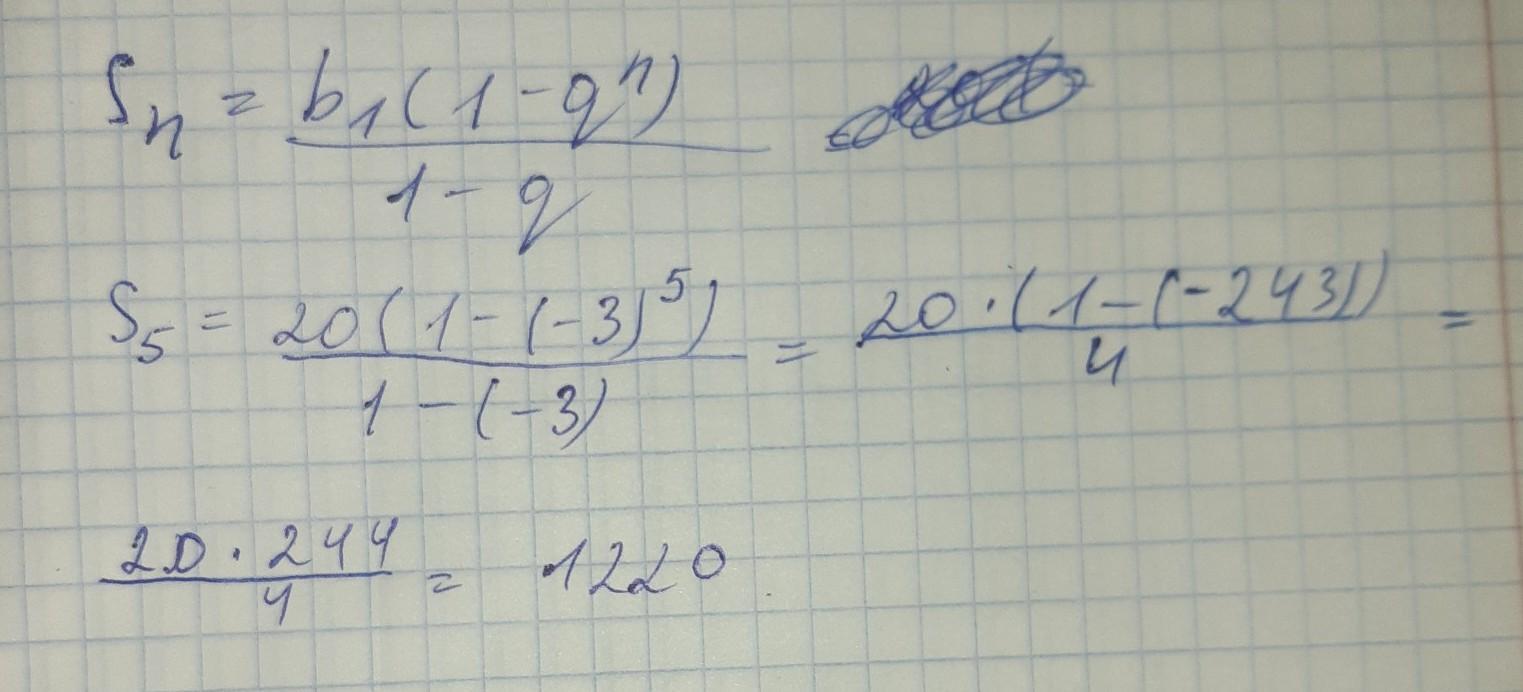 Sₙ = b₁(1 - qⁿ) / 1 - q
S₅ = 20(1 - (-3)⁵) / 1 - (-3) = 20 · (1 - (-243)) / 4 =
20 · 244 / 4 = 1220